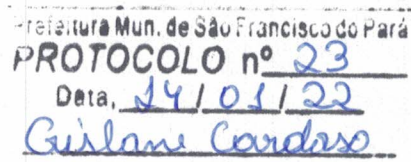 Prefeitura Mun. de São Francisco do Pará
PROTOCOLO nº 23
Data, 14/01/22
Cardoso